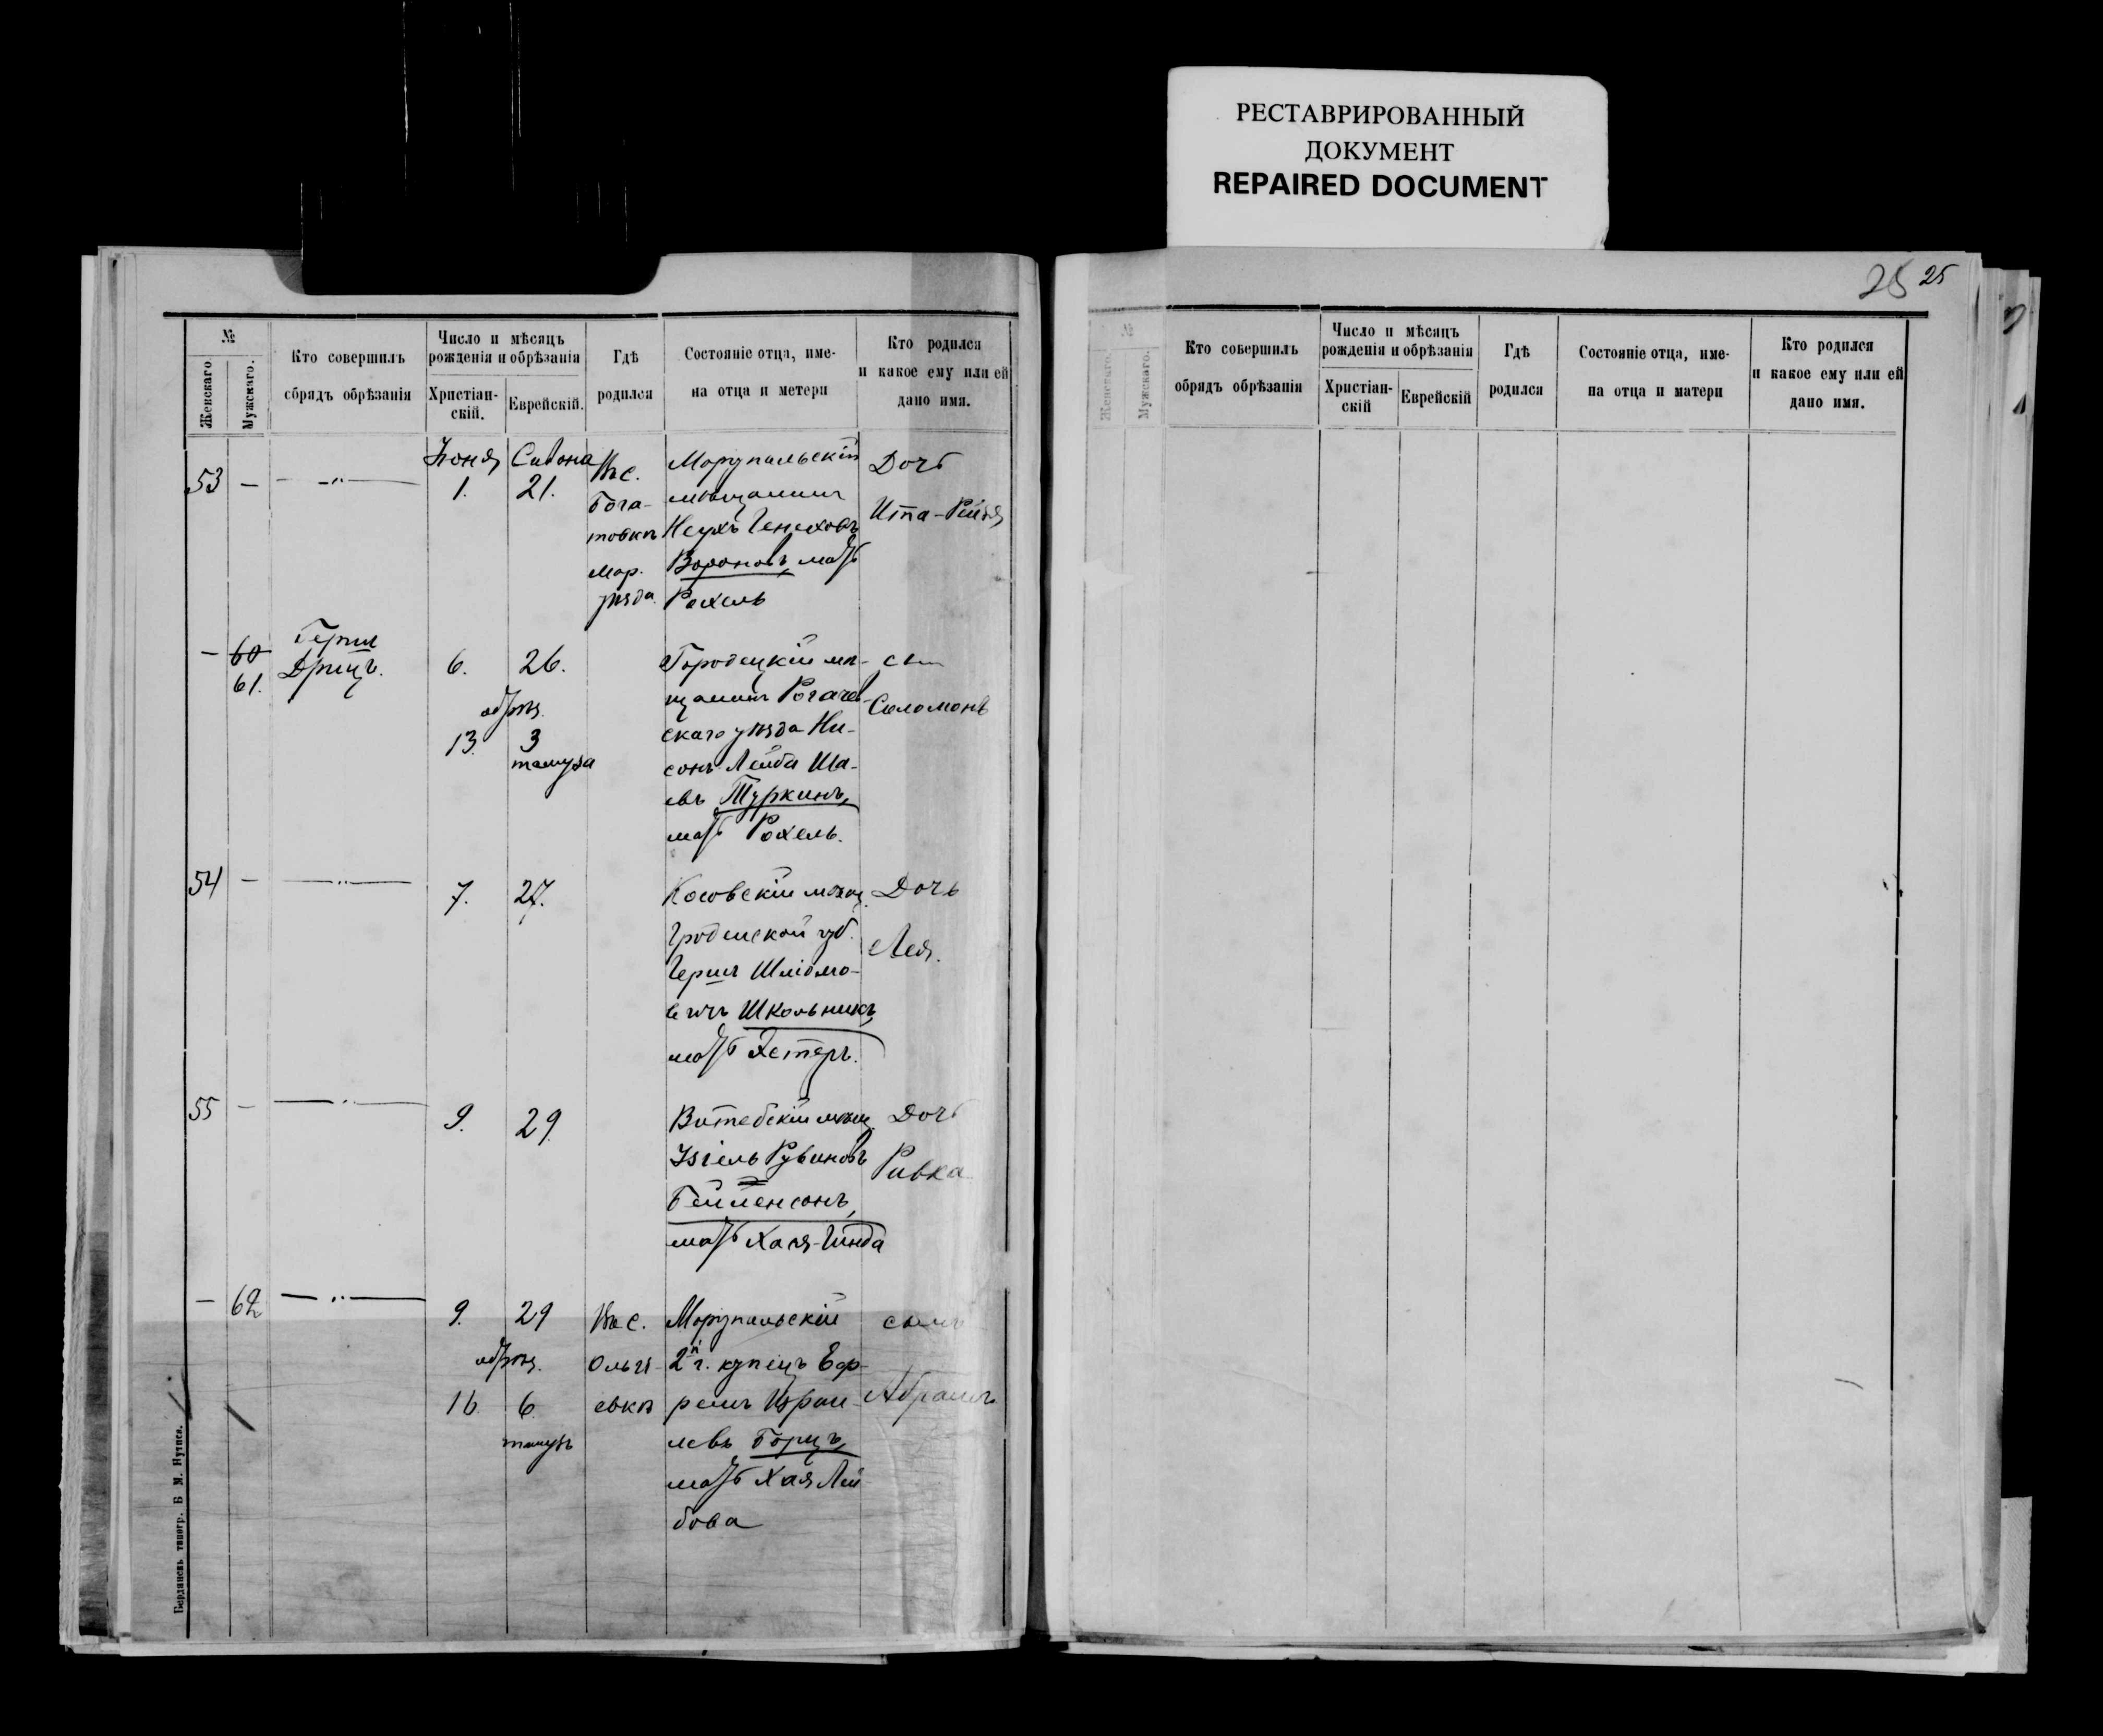 РЕСТАВРИРОВАННЫЙ
ДОКУМЕНТ
REPAIRED DOCUMENT
№
Женскаго
Мужскаго.
Кто совершилъ
сбрядъ обрѣзанія
Число и мѣсяцъ
рожденія и обрѣзанія
Христіан-
скій.
Еврейскій.
Гдѣ
родился
Состояніе отца, име-
на отца и метери
Кто родился
и какое ему или ей
дано имя.
53 — — „ —
Іюня
1.
Сивона
21.
Въ с.
Бога-
товкѣ
Мар.
уѣзда
Моріупальскій
мѣщанинъ
Неухъ Генеховъ
Вороновъ, мать
Рохель
Дочь
Ита-Рейзя
— 60
61.
Герш
Дрицъ.
6.
26.
обрѣз.
13.
3
тамуза
Городецкій мѣ-
щанинъ Рогачев-
скаго уѣзда Ни-
сонъ-Лейба Ша-
евъ Туркинъ,
мать Рохель.
сын
Соломонъ
54 — — „ —
7.
27.
Косовскій мѣщ.
Гродненской губ.
Герш Шліомо-
вичъ Школьникъ,
мать Хетеръ.
Дочь
Лея.
55 — — „ —
9.
29.
Витебскій мѣщ.
Рувиновъ
Бейленсонъ,
мать Хая-Гинда
Дочь
Ривка
— 62 — „ —
9.
29
обрѣз.
16
6
тамузъ
Въ с.
Ольги-
евкѣ
Моріупальскій
2й г. купецъ Еф-
ремъ Израи-
левъ Борцъ,
мать Хая Лей-
бова
сынъ
Абрамъ
Бердянскъ типогр. Б М. Нутиса.
25 25
№
Женскаго.
Мужскаго.
Кто совершилъ
обрядъ обрѣзанія
Число и мѣсяцъ
рожденія и обрѣзанія
Христіан-
скій
Еврейскій
Гдѣ
родился
Состояніе отца, име-
на отца и матери
Кто родился
и какое ему или ей
дано имя.